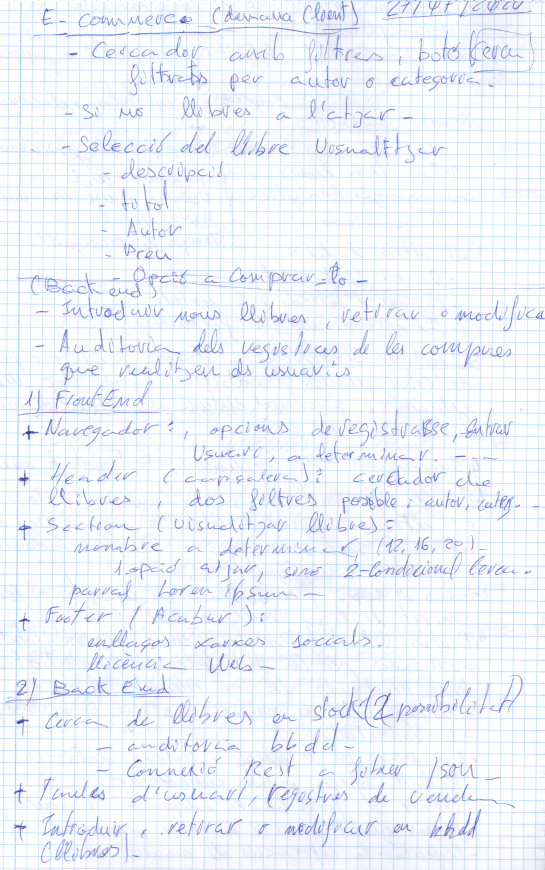 E-commerce (demana Client) 27/04/2020
- Cercador amb filtres, botó cerca
filtrats per autor o categoria.
- Si no llibres a l'atzar -
- Selecció del llibre Visualitzar
- descripció
- títol
- Autor
- Preu
- Opció a Comprar-lo -
(Back end)
- Introduir nous llibres, retirar o modificar
- Auditoria dels registres de les compres
que realitzen els usuaris
1) FrontEnd
+ Navegador:, opcions de registrarse, entrar
Usuari, a determinar. ---
+ Header (capçalera): cercador de
llibres, dos filtres possible: autor, categ. -
+ Section (visualitzar llibres):
nombre a determinar, (12, 16, 20) -
1 opció atzar, sinó 2-Condicional Cerca -
parval Lorem ipsum -
+ Footer (Acabar):
enllaços xarxes socials.
llicència Web -
2) Back End
+ Cerca de llibres en stock (2 possibilitat)
- auditoria bbdd -
- Connexió Rest a fitxer json -
+ Taules d'usuari, registres de venda
+ Introduir, retirar o modificar en bbdd
(llibres) -